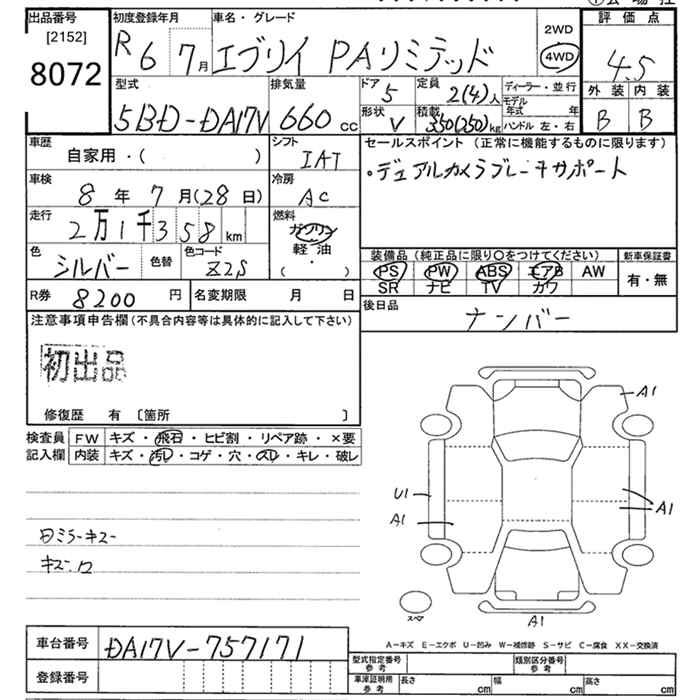 出品番号 初度登録年月 車名・グレード 評価点
[2152] 2WD
8072 R6 7月 エブリイ PAリミテッド 4WD 4.5
型式 排気量 ドア 定員 ディーラー・並行 外装 内装
5 2(4)人 モデル年式 年
5BD-DA17V 660cc 形状 積載 ハンドル 左・右 B B
V 350(250)kg
車歴 シフト セールスポイント (正常に機能するものに限ります)
自家用・( ) IAT ・デュアルカメラブレーキサポート
車検 冷房
8年7月(28日) AC
走行 燃料
2万1千358km ガソリン
軽油
色 色替 色コード ( ・ ) 装備品 (純正品に限り○をつけてください) 新車保証書
シルバー Z2S PS PW ABS エアB AW 有・無
SR ナビ TV カワ
R券 8200円 名変期限 月 日 後日品
ナンバー
注意事項申告欄 (不具合内容等は具体的に記入して下さい)
初出品
修復歴 有 〔箇所 〕
検査員 FW キズ・飛石・ヒビ割・リペア跡・×要
記入欄 内装 キズ・汚レ・コゲ・穴・スレ・キレ・破レ
A1
U1
A1
A1
A1
スペア
A−キズ E−エクボ U−凹み W−補修跡 S−サビ C−腐食 XX−交換済
車台番号 DA17V-757171
型式指定番号 参考 類別区分番号 参考
登録番号 車庫証明用 参考 長さ cm 幅 cm 高さ cm